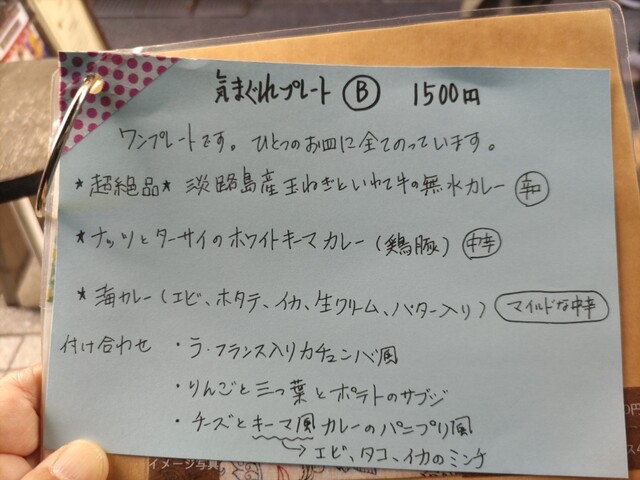 気まぐれプレート Ⓑ 1500円
ワンプレートです。ひとつのお皿に全てのっています。
★超絶品★ 淡路島産玉ねぎといわて牛の無水カレー 辛口
★ナッツとターサイのホワイトキーマカレー(鶏豚) 中辛
★海カレー(エビ、ホタテ、イカ、生クリーム、バター入り) マイルドな中辛
付け合わせ ・ラ・フランス入りカチュンバ風
・りんごと三つ葉とポテトのサブジ
・チーズとキーマ風カレーのパニプリ風
→エビ、タコ、イカのミンチ
イメージ写真